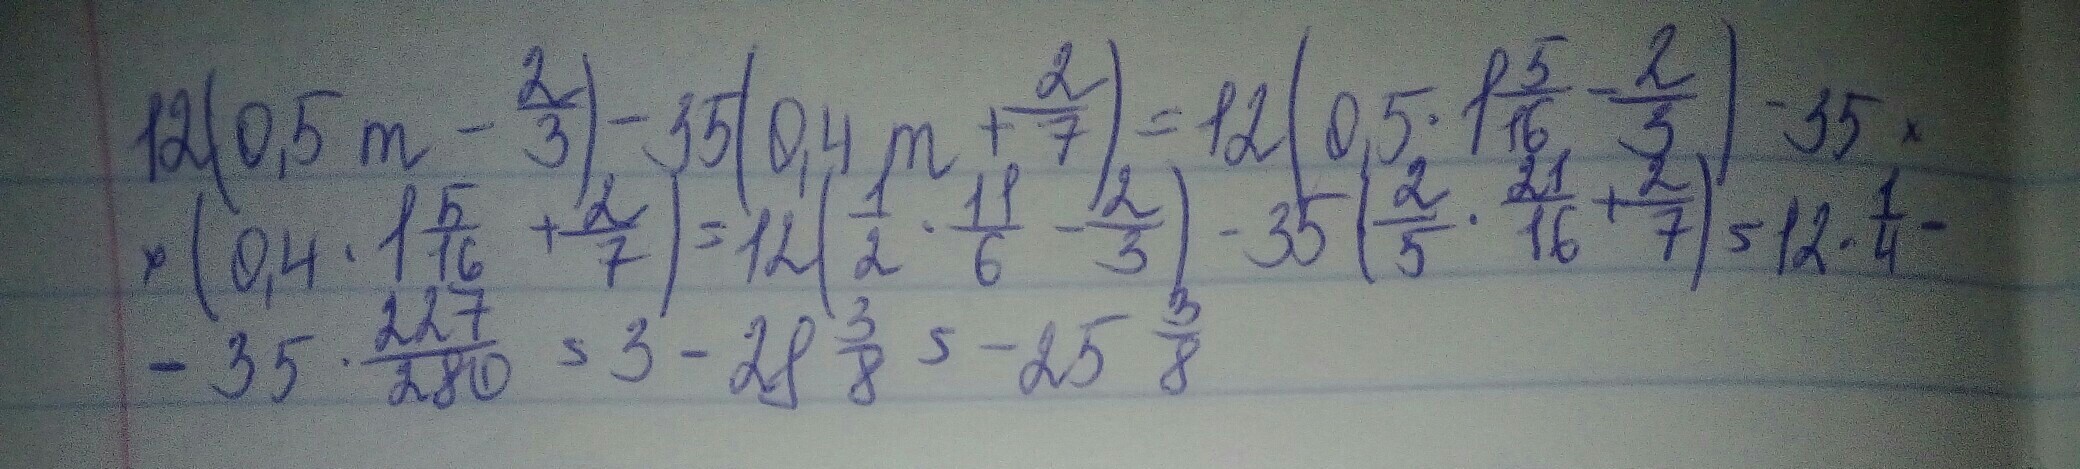 12(0,5 m - 2/3) - 35(0,4 m + 2/7) = 12(0,5 · 1 5/16 - 2/3) - 35 ×
× (0,4 · 1 5/16 + 2/7) = 12(1/2 · 11/6 - 2/3) - 35(2/5 · 21/16 + 2/7) = 12 · 1/4 -
- 35 · 227/280 = 3 - 28 3/8 = - 25 3/8